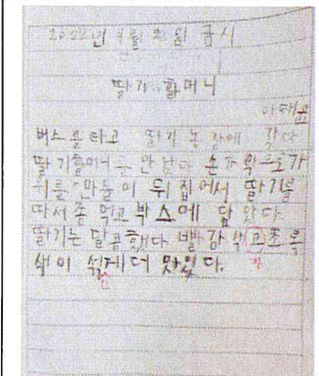 2022년 4월 2일 금시
딸기 할머니
아태
버스를 타고 딸기 농장에 갔다
딸기할머니를 만났다 손가락으로 가
위를 만들며 뒤집어서 딸기를
따서 쪽 먹고 박스에 담았다.
딸기는 달콤했다 빨강색고초록
색이 섞게 더 맛있다.